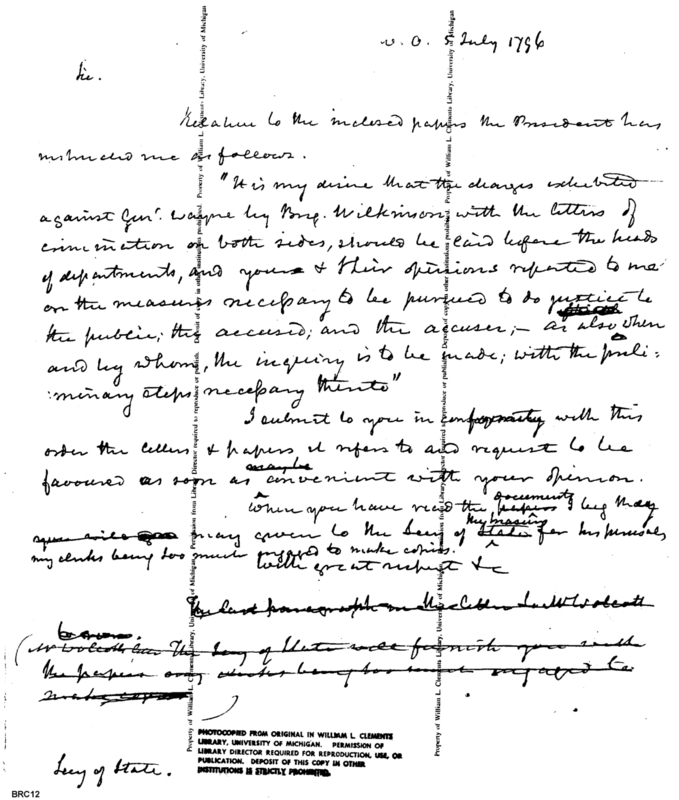 W. O. 5 July 1796
Sir.
Relative to the inclosed papers the President has
instructed me as follows.
"It is my desire that the charges exhibited
against Genl. Wayne by Brig. Wilkinson with the letters of
crimination on both sides, should be laid before the heads
of departments, and yours & their opinions reported to me
on the measures necessary to be pursued to do justice to
the public; the accused; and the accuser;- as also when
and by whom, the inquiry is to be made; with the preli=
=minary steps necessary thereto"
I submit to you in conformity with this
order the letters & papers it refers to and request to be
may be
favoured as soon as convenient with your opinion.
documents
When you have read the papers I beg they
the Treasury
may given to the Secy of State for his perusal,
my clerks being too much engaged to make copies.
With great respect &c
The last paragraph in the letter to Mr Wolcott
(Mr Wolcott The Secy of State will furnish you with
the papers my clerks being too much engaged to
make copies
)
Secy of State.
PHOTOCOPIED FROM ORIGINAL IN WILLIAM L. CLEMENTS
LIBRARY, UNIVERSITY OF MICHIGAN. PERMISSION OF
LIBRARY DIRECTOR REQUIRED FOR REPRODUCTION, USE, OR
PUBLICATION. DEPOSIT OF THIS COPY IN OTHER
INSTITUTIONS IS STRICTLY PROHIBITED.
Property of William L. Clements Library, University of Michigan
Property of William L. Clements Library, University of Michigan
BRC12